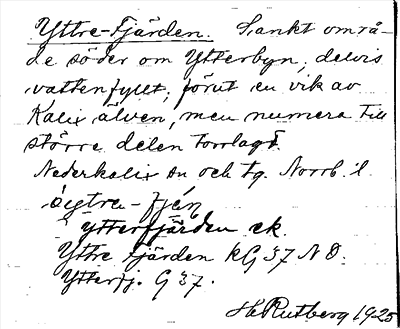 Yttre-Fjärden. Sankt områ-
de söder om Ytterbyn, delvis
vattenfyllt, förut en vik av
Kalix älven, men numera till
större delen torrlagt.
Nederkalix sn och tg. Norrb. l.
ytterfjärden ek.
Yttre Fjärden kG 37 N D.
Ytterfj. G 37.
H. Rutberg 1925